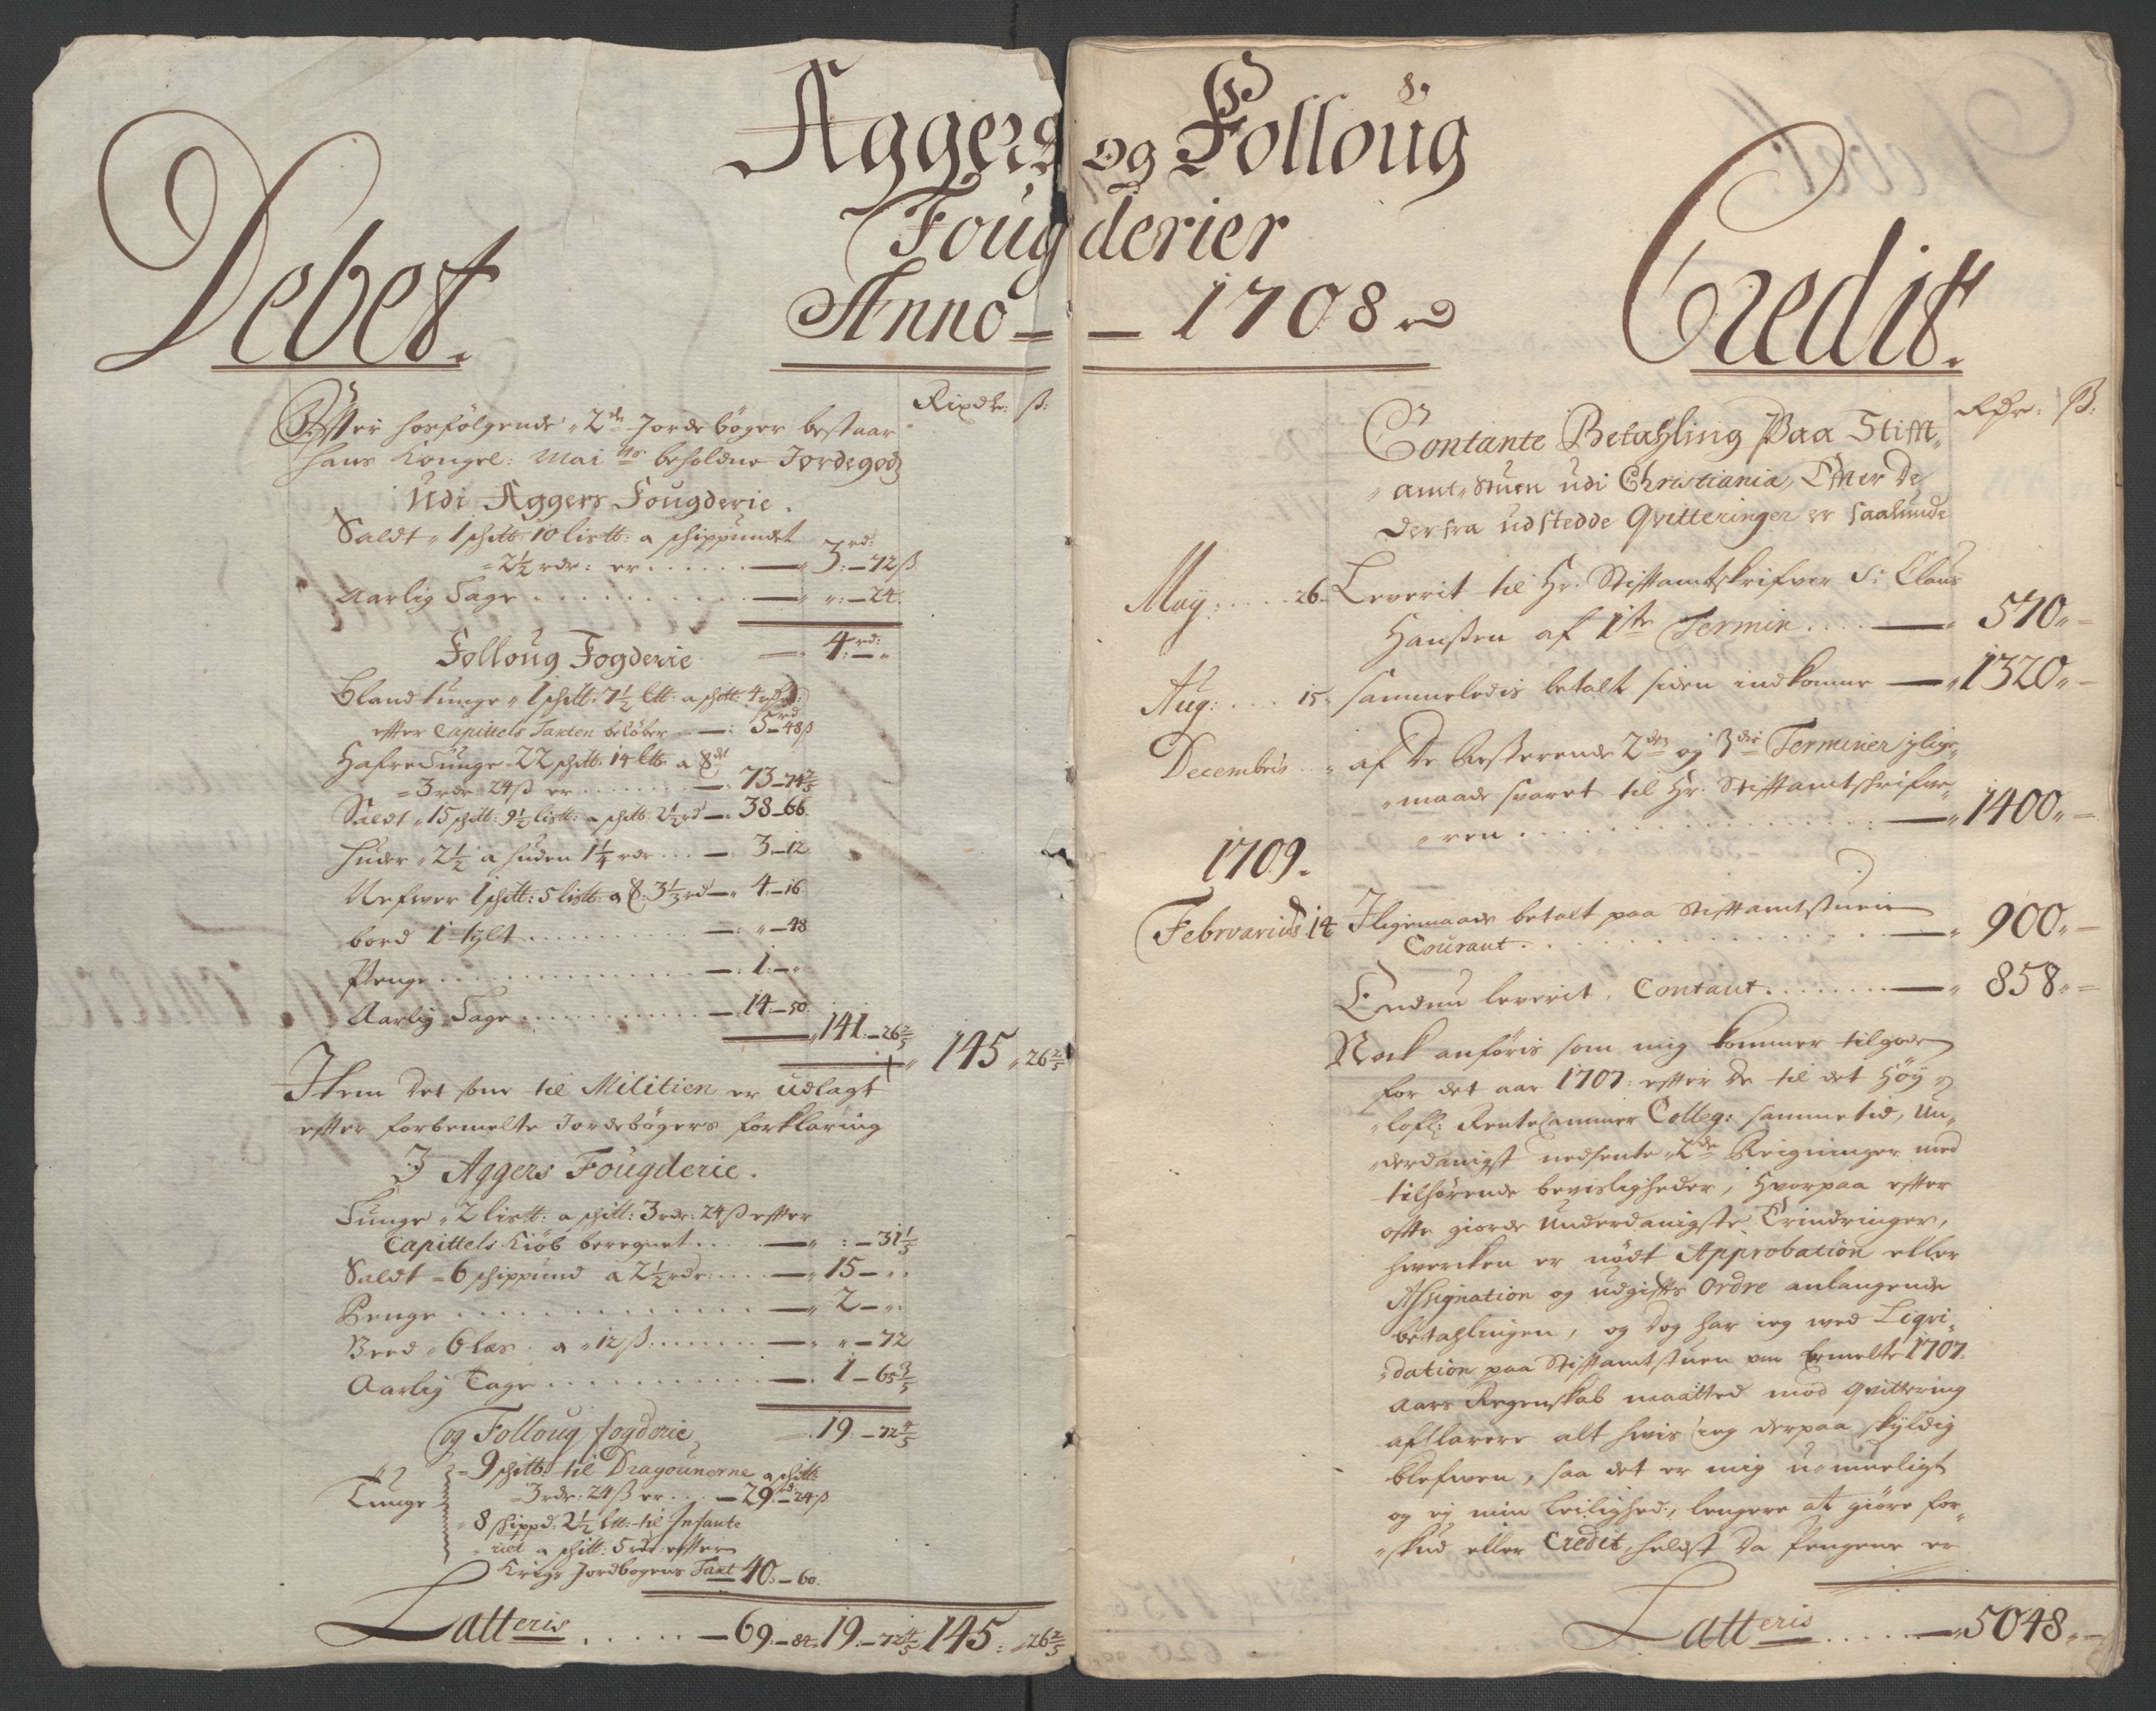 8.
Aggers og Folloug
Fougderier
Anno 1708
Debet.
Rixdr: ß:
Effter hosfölgende 2de Jordeböger bestaar
hans Kongel: Maits beholdne Jordegods
Udi Aggers Fougderie.
Saldt 1 schtt: 10 listt: a schippundet
2½ rdr: er . . . . . 3 rd: 72 ß
Aarlig Tage . . . . . „ 24.
4 rd: „
Folloug Fogderie
Bland tunge 1 schtt: 7½ ltt: a schtt: 4 rdr:
effter Capittels Taxten belöber — 5 rd 48 ß
Hafre Tunge 22 schtt: 14 ltt: a
3 rdr: 24 ß er . . . . 73 — 74 2/5
Saldt 15 schtt: 9½ listt: a schtt: 2½ rd — 38 — 66.
Huder 2½ a huden 1¼ rdr . . . 3 — 12
Nefwer 1 schtt: 5 listt: a 3⅓ rd — 4 — 16
bord 1 tylt . . . . . „ — 48
Penge . . . . . 1 — „
Aarlig Tage . . . . . 14 — 50
141 — 26 2/5
145 „ 26 2/5
Item det som til Militien er udlagt
effter forbemelte Jordebögers forklaring
I Aggers Fougderie.
Tunge 2 listt: a schtt: 3 rdr: 24 ß effter
Capittels Kiöb beregnet . . . — 31 1/5
Saldt 6 schippund a 2½ rdr . . . 15 — „
Penge . . . . . 2 — „
Veed 6 læs a 12 ß . . . . . „ — 72
Aarlig Tage . . . . . 1 — 65 3/5
og Folloug fogderie 19 — 72 4/5
Tunge
9 schtt: til Dragounerne a schtt:
3 rdr: 24 ß er . . . 29 rd — 24 ß
8 schippd: 2½ ltt: til Infante
riet a schtt: 5 rdr effter
Krigs Jordbogens Taxt 40 — 60.
Latteris . . . . . 69 — 84. 19 — 72 4/5 145 „ 26 2/5
Credit.
Rdr: ß:
Contante Betahling Paa Stifft
amt Stuen udi Christiania, Effter De
derfra udstedde Qvitteringer er saalunde
May: . . . 26. Leverit til Hr. Stifftamtskrifver Sr: Claus
Hanßen af 1ste Termin . . . 570 „ —
Aug: . . . 15. sammeledis betalt siden indkomne — 1320 „ —
Decembris . . „ af De Resterende 2den og 3die Terminer ylige
maade svaret til Hr. Stifftamtskrifve
ren . . . . . 1400 „ —
1709.
Februarius 14 Iligemaade betalt paa Stifftamtstuen
Courant . . . . . 900 „ —
Endnu leverit, Contant . . . . . 858 „ —
Nock anföris som mig kommer tilgode
for det aar 1707: effter De til det Höy
lofl: RenteCammer Colleg: sammetid, Un
derdanigst nedsente 2de Reigninger med
tilhörende bevisligheder, Hvorpaa effter
offte giorde Underdanigste Erindringer,
hvercken er nödt Approbation eller
Assignation og udgiffts Ordre anlangende
betahlingen, og dog har ieg wed Liqvi
dation paa Stifftamtstuen om Ermelte 1707.
Aars Regenskab maatted mod Qvittering
afklarere alt hwis ieg derpaa skyldig
blefwen, saa det er mig u-mueligt
og ej min leilighed, lengere at giöre for
skud eller Credit, heldst da Pengene er
Latteris . . . . . 5048 „ —